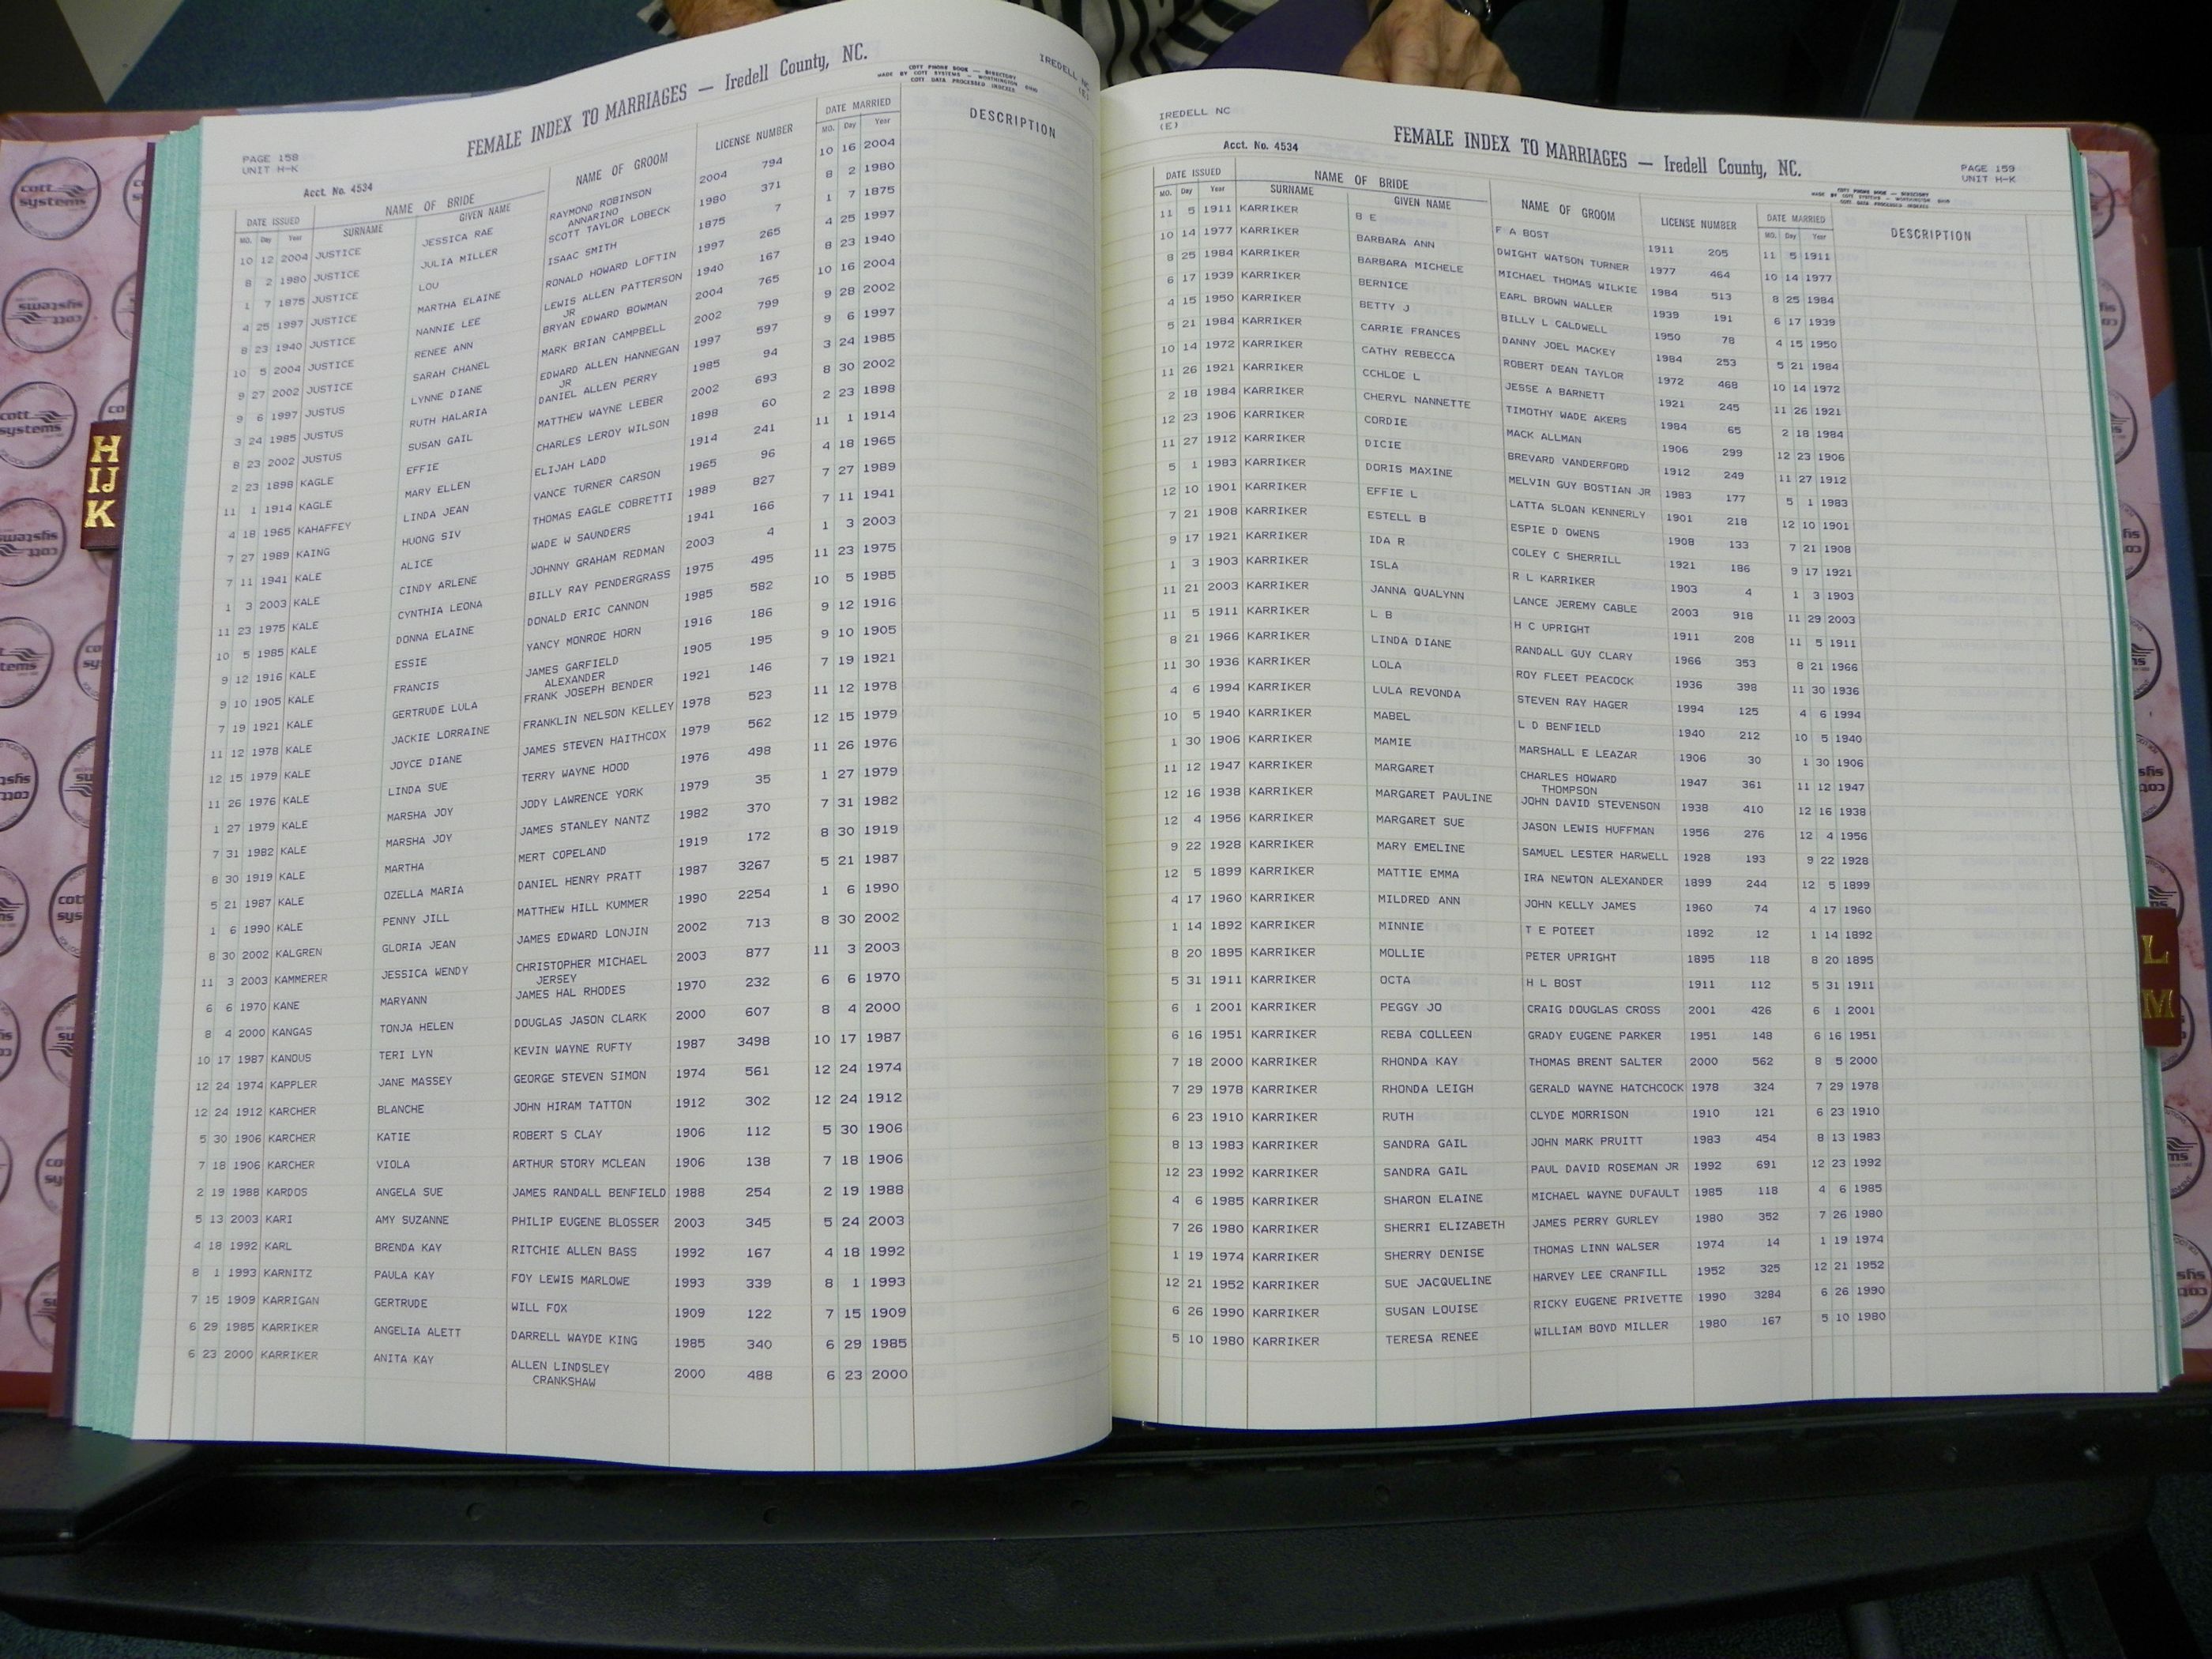 PAGE 158
UNIT H-K
FEMALE INDEX TO MARRIAGES — Iredell County, NC.
COTT PHONE BOOK — DIRECTORY
MADE BY COTT SYSTEMS — WORTHINGTON OHIO
COTT DATA PROCESSED INDEXES
IREDELL NC
(E)
Acct. No. 4534
DATE ISSUED NAME OF BRIDE NAME OF GROOM LICENSE NUMBER DATE MARRIED DESCRIPTION
MO. Day Year SURNAME GIVEN NAME MO. Day Year
10 12 2004 JUSTICE JESSICA RAE RAYMOND ROBINSON 2004 794 10 16 2004
ANNARINO
8 2 1980 JUSTICE JULIA MILLER SCOTT TAYLOR LOBECK 1980 371 8 2 1980
1 7 1875 JUSTICE LOU ISAAC SMITH 1875 7 1 7 1875
4 25 1997 JUSTICE MARTHA ELAINE RONALD HOWARD LOFTIN 1997 265 4 25 1997
8 23 1940 JUSTICE NANNIE LEE LEWIS ALLEN PATTERSON 1940 167 8 23 1940
JR
10 5 2004 JUSTICE RENEE ANN BRYAN EDWARD BOWMAN 2004 765 10 16 2004
9 27 2002 JUSTICE SARAH CHANEL MARK BRIAN CAMPBELL 2002 799 9 28 2002
9 6 1997 JUSTUS LYNNE DIANE EDWARD ALLEN HANNEGAN 1997 597 9 6 1997
JR
3 24 1985 JUSTUS RUTH HALARIA DANIEL ALLEN PERRY 1985 94 3 24 1985
8 23 2002 JUSTUS SUSAN GAIL MATTHEW WAYNE LEBER 2002 693 8 30 2002
2 23 1898 KAGLE EFFIE CHARLES LEROY WILSON 1898 60 2 23 1898
11 1 1914 KAGLE MARY ELLEN ELIJAH LADD 1914 241 11 1 1914
4 18 1965 KAHAFFEY LINDA JEAN VANCE TURNER CARSON 1965 96 4 18 1965
7 27 1989 KAING HUONG SIV THOMAS EAGLE COBRETTI 1989 827 7 27 1989
7 11 1941 KALE ALICE WADE W SAUNDERS 1941 166 7 11 1941
1 3 2003 KALE CINDY ARLENE JOHNNY GRAHAM REDMAN 2003 4 1 3 2003
11 23 1975 KALE CYNTHIA LEONA BILLY RAY PENDERGRASS 1975 495 11 23 1975
10 5 1985 KALE DONNA ELAINE DONALD ERIC CANNON 1985 582 10 5 1985
9 12 1916 KALE ESSIE YANCY MONROE HORN 1916 186 9 12 1916
9 10 1905 KALE FRANCIS JAMES GARFIELD 1905 195 9 10 1905
ALEXANDER
7 19 1921 KALE GERTRUDE LULA FRANK JOSEPH BENDER 1921 146 7 19 1921
11 12 1978 KALE JACKIE LORRAINE FRANKLIN NELSON KELLEY 1978 523 11 12 1978
12 15 1979 KALE JOYCE DIANE JAMES STEVEN HAITHCOX 1979 562 12 15 1979
11 26 1976 KALE LINDA SUE TERRY WAYNE HOOD 1976 498 11 26 1976
1 27 1979 KALE MARSHA JOY JODY LAWRENCE YORK 1979 35 1 27 1979
7 31 1982 KALE MARSHA JOY JAMES STANLEY NANTZ 1982 370 7 31 1982
8 30 1919 KALE MARTHA MERT COPELAND 1919 172 8 30 1919
5 21 1987 KALE OZELLA MARIA DANIEL HENRY PRATT 1987 3267 5 21 1987
1 6 1990 KALE PENNY JILL MATTHEW HILL KUMMER 1990 2254 1 6 1990
8 30 2002 KALGREN GLORIA JEAN JAMES EDWARD LONJIN 2002 713 8 30 2002
11 3 2003 KAMMERER JESSICA WENDY CHRISTOPHER MICHAEL 2003 877 11 3 2003
JERSEY
6 6 1970 KANE MARYANN JAMES HAL RHODES 1970 232 6 6 1970
8 4 2000 KANGAS TONJA HELEN DOUGLAS JASON CLARK 2000 607 8 4 2000
10 17 1987 KANOUS TERI LYN KEVIN WAYNE RUFTY 1987 3498 10 17 1987
12 24 1974 KAPPLER JANE MASSEY GEORGE STEVEN SIMON 1974 561 12 24 1974
12 24 1912 KARCHER BLANCHE JOHN HIRAM TATTON 1912 302 12 24 1912
5 30 1906 KARCHER KATIE ROBERT S CLAY 1906 112 5 30 1906
7 18 1906 KARCHER VIOLA ARTHUR STORY MCLEAN 1906 138 7 18 1906
2 19 1988 KARDOS ANGELA SUE JAMES RANDALL BENFIELD 1988 254 2 19 1988
5 13 2003 KARI AMY SUZANNE PHILIP EUGENE BLOSSER 2003 345 5 24 2003
4 18 1992 KARL BRENDA KAY RITCHIE ALLEN BASS 1992 167 4 18 1992
8 1 1993 KARNITZ PAULA KAY FOY LEWIS MARLOWE 1993 339 8 1 1993
7 15 1909 KARRIGAN GERTRUDE WILL FOX 1909 122 7 15 1909
6 29 1985 KARRIKER ANGELIA ALETT DARRELL WAYDE KING 1985 340 6 29 1985
6 23 2000 KARRIKER ANITA KAY ALLEN LINDSLEY 2000 488 6 23 2000
CRANKSHAW
IREDELL NC
(E)
Acct. No. 4534
FEMALE INDEX TO MARRIAGES — Iredell County, NC.
PAGE 159
UNIT H-K
COTT PHONE BOOK — DIRECTORY
MADE BY COTT SYSTEMS — WORTHINGTON OHIO
COTT DATA PROCESSED INDEXES
DATE ISSUED NAME OF BRIDE NAME OF GROOM LICENSE NUMBER DATE MARRIED DESCRIPTION
MO. Day Year SURNAME GIVEN NAME MO. Day Year
11 5 1911 KARRIKER B E F A BOST 1911 205 11 5 1911
10 14 1977 KARRIKER BARBARA ANN DWIGHT WATSON TURNER 1977 464 10 14 1977
8 25 1984 KARRIKER BARBARA MICHELE MICHAEL THOMAS WILKIE 1984 513 8 25 1984
6 17 1939 KARRIKER BERNICE EARL BROWN WALLER 1939 191 6 17 1939
4 15 1950 KARRIKER BETTY J BILLY L CALDWELL 1950 78 4 15 1950
5 21 1984 KARRIKER CARRIE FRANCES DANNY JOEL MACKEY 1984 253 5 21 1984
10 14 1972 KARRIKER CATHY REBECCA ROBERT DEAN TAYLOR 1972 468 10 14 1972
11 26 1921 KARRIKER CCHLOE L JESSE A BARNETT 1921 245 11 26 1921
2 18 1984 KARRIKER CHERYL NANNETTE TIMOTHY WADE AKERS 1984 65 2 18 1984
12 23 1906 KARRIKER CORDIE MACK ALLMAN 1906 299 12 23 1906
11 27 1912 KARRIKER DICIE BREVARD VANDERFORD 1912 249 11 27 1912
5 1 1983 KARRIKER DORIS MAXINE MELVIN GUY BOSTIAN JR 1983 177 5 1 1983
12 10 1901 KARRIKER EFFIE L LATTA SLOAN KENNERLY 1901 218 12 10 1901
7 21 1908 KARRIKER ESTELL B ESPIE D OWENS 1908 133 7 21 1908
9 17 1921 KARRIKER IDA R COLEY C SHERRILL 1921 186 9 17 1921
1 3 1903 KARRIKER ISLA R L KARRIKER 1903 4 1 3 1903
11 21 2003 KARRIKER JANNA QUALYNN LANCE JEREMY CABLE 2003 918 11 29 2003
11 5 1911 KARRIKER L B H C UPRIGHT 1911 208 11 5 1911
8 21 1966 KARRIKER LINDA DIANE RANDALL GUY CLARY 1966 353 8 21 1966
11 30 1936 KARRIKER LOLA ROY FLEET PEACOCK 1936 398 11 30 1936
4 6 1994 KARRIKER LULA REVONDA STEVEN RAY HAGER 1994 125 4 6 1994
10 5 1940 KARRIKER MABEL L D BENFIELD 1940 212 10 5 1940
1 30 1906 KARRIKER MAMIE MARSHALL E LEAZAR 1906 30 1 30 1906
11 12 1947 KARRIKER MARGARET CHARLES HOWARD 1947 361 11 12 1947
THOMPSON
12 16 1938 KARRIKER MARGARET PAULINE JOHN DAVID STEVENSON 1938 410 12 16 1938
12 4 1956 KARRIKER MARGARET SUE JASON LEWIS HUFFMAN 1956 276 12 4 1956
9 22 1928 KARRIKER MARY EMELINE SAMUEL LESTER HARWELL 1928 193 9 22 1928
12 5 1899 KARRIKER MATTIE EMMA IRA NEWTON ALEXANDER 1899 244 12 5 1899
4 17 1960 KARRIKER MILDRED ANN JOHN KELLY JAMES 1960 74 4 17 1960
1 14 1892 KARRIKER MINNIE T E POTEET 1892 12 1 14 1892
8 20 1895 KARRIKER MOLLIE PETER UPRIGHT 1895 118 8 20 1895
5 31 1911 KARRIKER OCTA H L BOST 1911 112 5 31 1911
6 1 2001 KARRIKER PEGGY JO CRAIG DOUGLAS CROSS 2001 426 6 1 2001
6 16 1951 KARRIKER REBA COLLEEN GRADY EUGENE PARKER 1951 148 6 16 1951
7 18 2000 KARRIKER RHONDA KAY THOMAS BRENT SALTER 2000 562 8 5 2000
7 29 1978 KARRIKER RHONDA LEIGH GERALD WAYNE HATCHCOCK 1978 324 7 29 1978
6 23 1910 KARRIKER RUTH CLYDE MORRISON 1910 121 6 23 1910
8 13 1983 KARRIKER SANDRA GAIL JOHN MARK PRUITT 1983 454 8 13 1983
12 23 1992 KARRIKER SANDRA GAIL PAUL DAVID ROSEMAN JR 1992 691 12 23 1992
4 6 1985 KARRIKER SHARON ELAINE MICHAEL WAYNE DUFAULT 1985 118 4 6 1985
7 26 1980 KARRIKER SHERRI ELIZABETH JAMES PERRY GURLEY 1980 352 7 26 1980
1 19 1974 KARRIKER SHERRY DENISE THOMAS LINN WALSER 1974 14 1 19 1974
12 21 1952 KARRIKER SUE JACQUELINE HARVEY LEE CRANFILL 1952 325 12 21 1952
6 26 1990 KARRIKER SUSAN LOUISE RICKY EUGENE PRIVETTE 1990 3284 6 26 1990
5 10 1980 KARRIKER TERESA RENEE WILLIAM BOYD MILLER 1980 167 5 10 1980
H
IJ
K
L
M
cott
systems